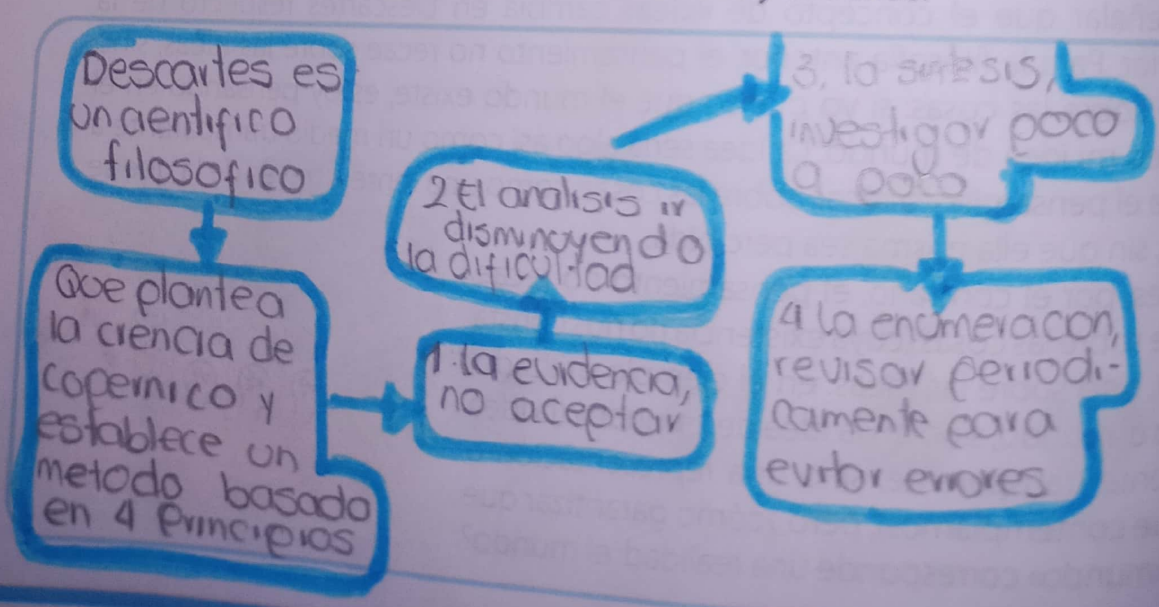 Descartes es
un cientifico
filosofico
Que plantea
la ciencia de
copernico y
establece un
metodo basado
en 4 Principios
1. la evidencia,
no aceptar
2 El analisis ir
disminuyendo
la dificultad
3. la sintesis,
investigar poco
a poco
4 la enumeracion,
revisar periodi-
camente para
evitar errores